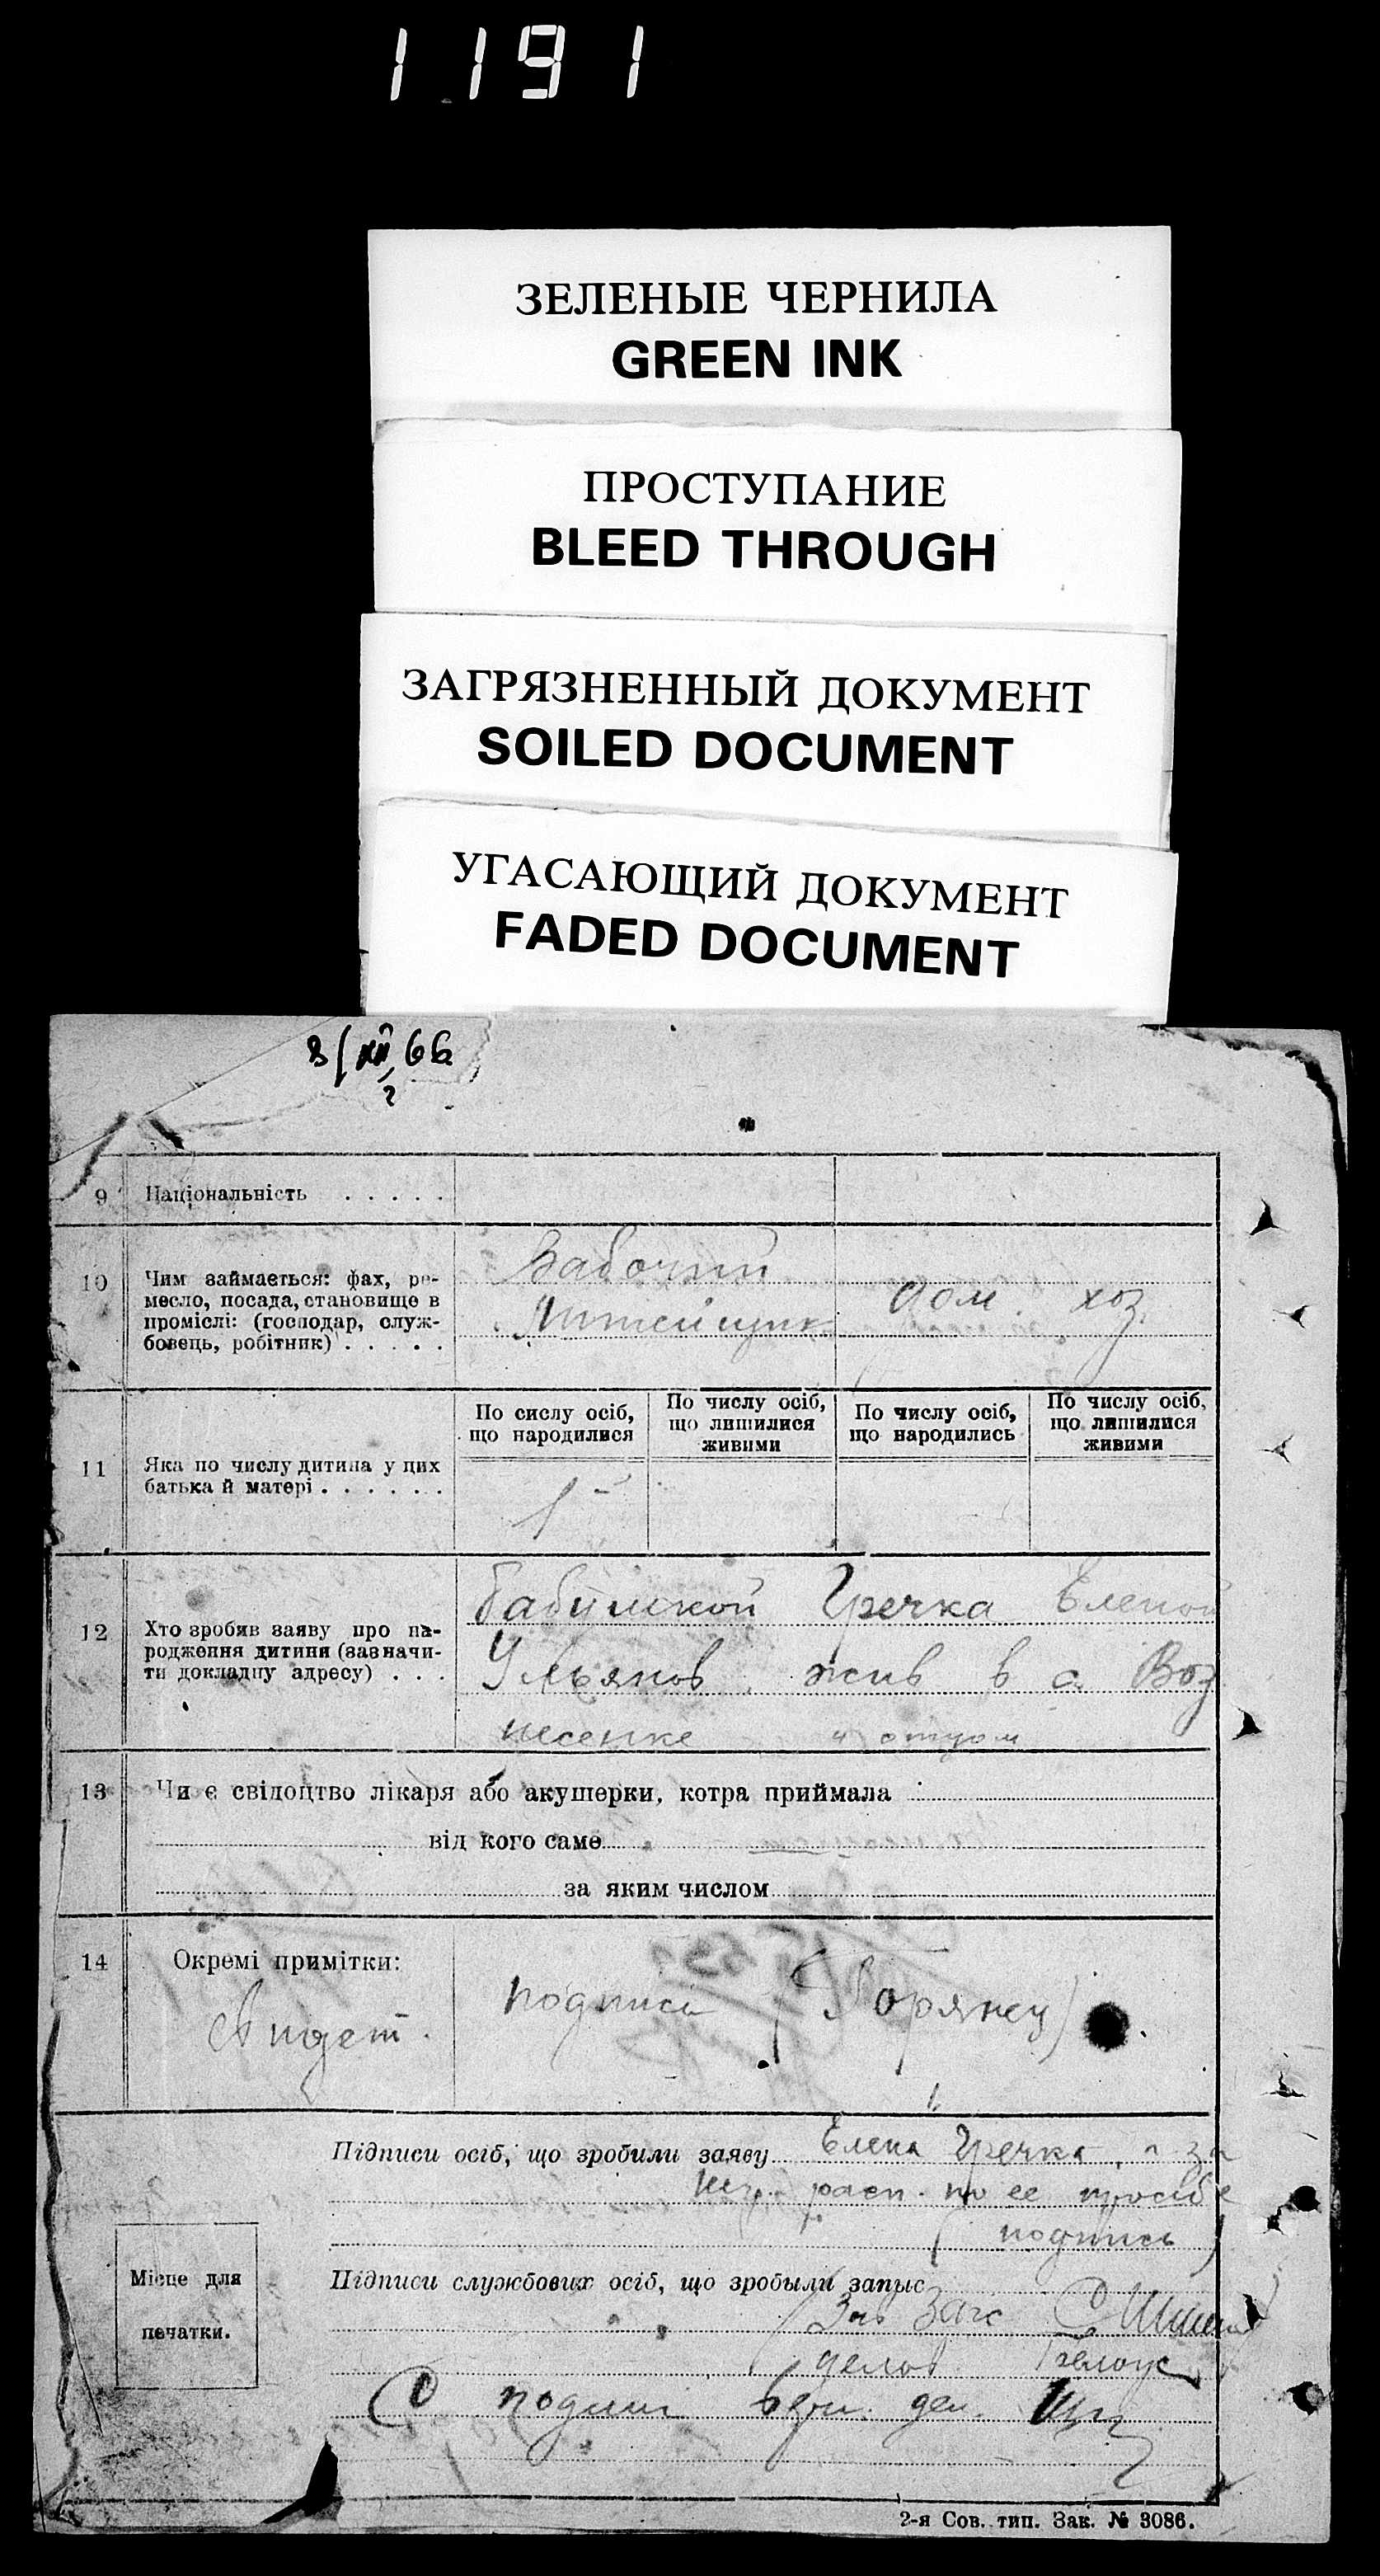 1191
ЗЕЛЕНЫЕ ЧЕРНИЛА
GREEN INK
ПРОСТУПАНИЕ
BLEED THROUGH
ЗАГРЯЗНЕННЫЙ ДОКУМЕНТ
SOILED DOCUMENT
УГАСАЮЩИЙ ДОКУМЕНТ
FADED DOCUMENT
9 Національність . . . . .
10 Чим займається: фах, ре-
месло, посада, становище в
промислі: (господар, служ-
бовець, робітник) . . . . .
Рабочий
Литейщик
Дом. хоз.
11 Яка по числу дитина у цих
батька й матері . . . . . .
По сислу осіб,
що народилися
По числу осіб,
що лишилися
живими
По числу осіб,
що народились
По числу осіб,
що лишилися
живими
1
12 Хто зробив заяву про на-
родження дитини (зазначи-
ти докладну адресу) . . .
Гречка Еленой
Ульянов. жив в с. Воз
несенке и отцом
13 Чи є свідоцтво лікаря або акушерки, котра приймала
від кого саме
за яким числом
14 Окремі примітки:
подписи
Підписи осіб, що зробили заяву Елена Гречка, а за
расп. по ее просьбе
(подпись)
Підписи службових осіб, що зробыли запыс
Зав Загс
делов. Белоус
Місце для
печатки.
2-я Сов. тип. Зак. № 3086.